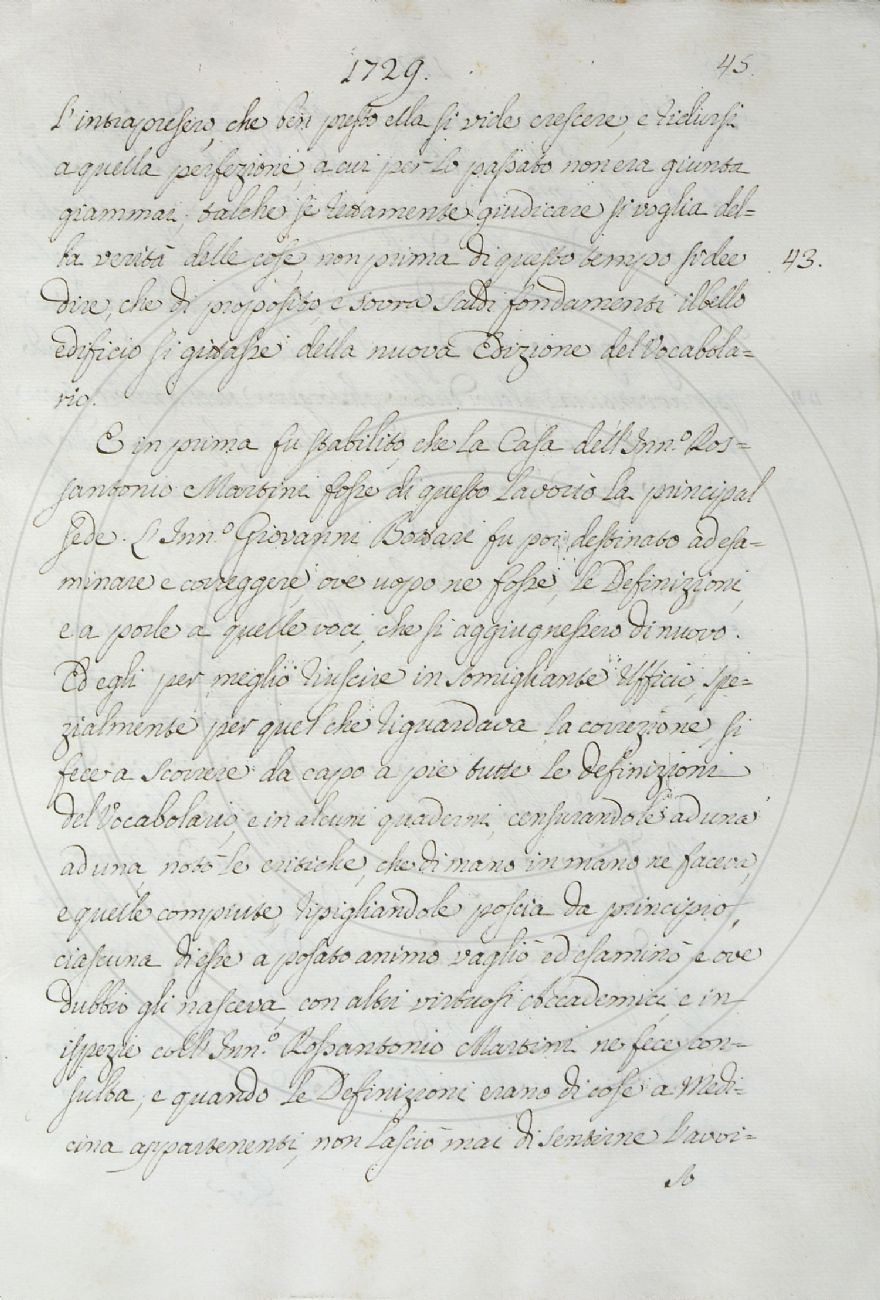 1729.
45.
l'intrapresero, che ben presto ella si vide crescere, e ridursi
a quella perfezione, a cui per lo passato non era giunta
giammai; talche se rettamente giudicare si voglia del=
la verità delle cose, non prima di questo tempo si dee
43.
dire, che di proposito e sovra saldi fondamenti il bello
edificio si gittasse della nuova Edizione del Vocabola=
rio.
E in prima fu stabilito, che la Casa dell'Inn.º Ros=
santonio Martini fosse di questo lavorio la principal
sede. L'Inn.º Giovanni Bottari fu poi destinato ad esa=
minare e correggere, ove uopo ne fosse, le Definizioni,
e a porle a quelle voci, che si aggiugnessero di nuovo.
Ed egli per meglio riuscire in somigliante Ufficio, spe=
zialmente per quel che riguardava la correzione, si
fece a scorrere da capo a pie tutte le Definizioni
del Vocabolario, e in alcuni quaderni, censurandole ad una
ad una, notò le critiche, che di mano in mano ne faceva,
e quelle compiute, ripigliandole poscia da principio,
ciascuna di esse a posato animo vagliò ed esaminò e ove
dubbio gli nasceva, con altri virtuosi Accademici, e in
ispezie coll'Inn.º Rossantonio Martini ne fece con=
sulta; e quando le Definizioni erano di cose a Medi=
cina appartenenti, non lasciò mai di sentirne l'avvi=
so